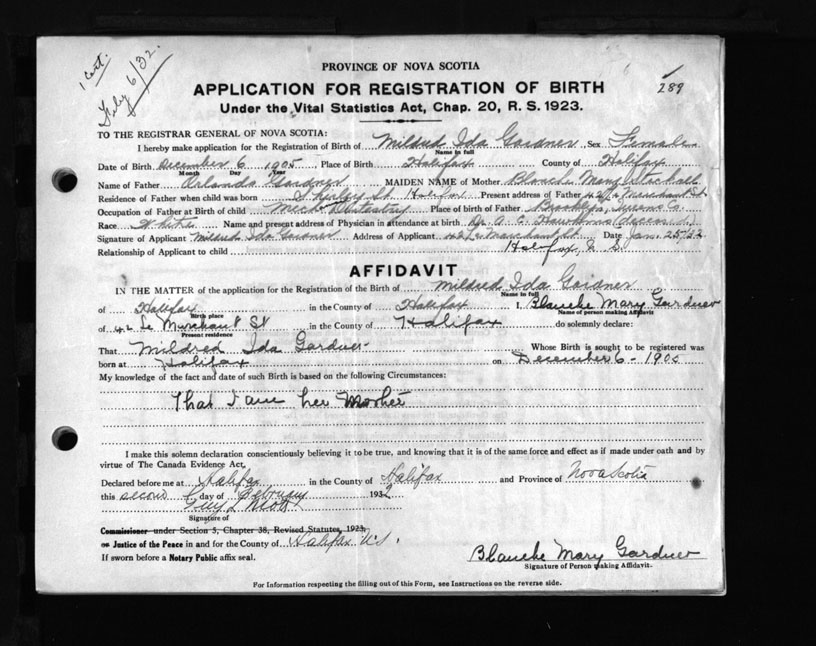 1 Cert.
Feby 6/32.
289
PROVINCE OF NOVA SCOTIA
APPLICATION FOR REGISTRATION OF BIRTH
Under the Vital Statistics Act, Chap. 20, R. S. 1923.
TO THE REGISTRAR GENERAL OF NOVA SCOTIA:
I hereby make application for the Registration of Birth of Mildred Ida Gardner Sex Female
Name in full
Date of Birth December 6 1905 Place of Birth Halifax County of Halifax
Month Day Year
Name of Father Orlando Gardner MAIDEN NAME of Mother Blanche Mary
Residence of Father when child was born Shirley St Halifax Present address of Father 42 Le Marchant St
Occupation of Father at Birth of child Place of birth of Father Brooklyn, Queens Co.
Race White Name and present address of Physician in attendance at birth Dr. A. C. Hawkins deceased
Signature of Applicant Mildred Ida Gardner Address of Applicant 42 Le Marchant St Date Jan. 25/32
Relationship of Applicant to child Halifax, N. S.
AFFIDAVIT
IN THE MATTER of the application for the Registration of the Birth of Mildred Ida Gardner
Name in full
of Halifax in the County of Halifax I, Blanche Mary Gardner
Birth place Name of person making Affidavit
of 42 Le Marchant St in the County of Halifax do solemnly declare:
Present residence
That Mildred Ida Gardner Whose Birth is sought to be registered was
born at Halifax on December 6 - 1905
My knowledge of the fact and date of such Birth is based on the following Circumstances:
That I am her Mother
I make this solemn declaration conscientiously believing it to be true, and knowing that it is of the same force and effect as if made under oath and by
virtue of The Canada Evidence Act,
Declared before me at Halifax in the County of Halifax and Province of Nova Scotia
this second day of February 1932
Guy L Mott
Signature of
Commissioner under Section 5, Chapter 38, Revised Statutes, 1923,
or Justice of the Peace in and for the County of Halifax N.S.
If sworn before a Notary Public affix seal.
Blanche Mary Gardner
Signature of Person making Affidavit.
For Information respecting the filling out of this Form, see Instructions on the reverse side.